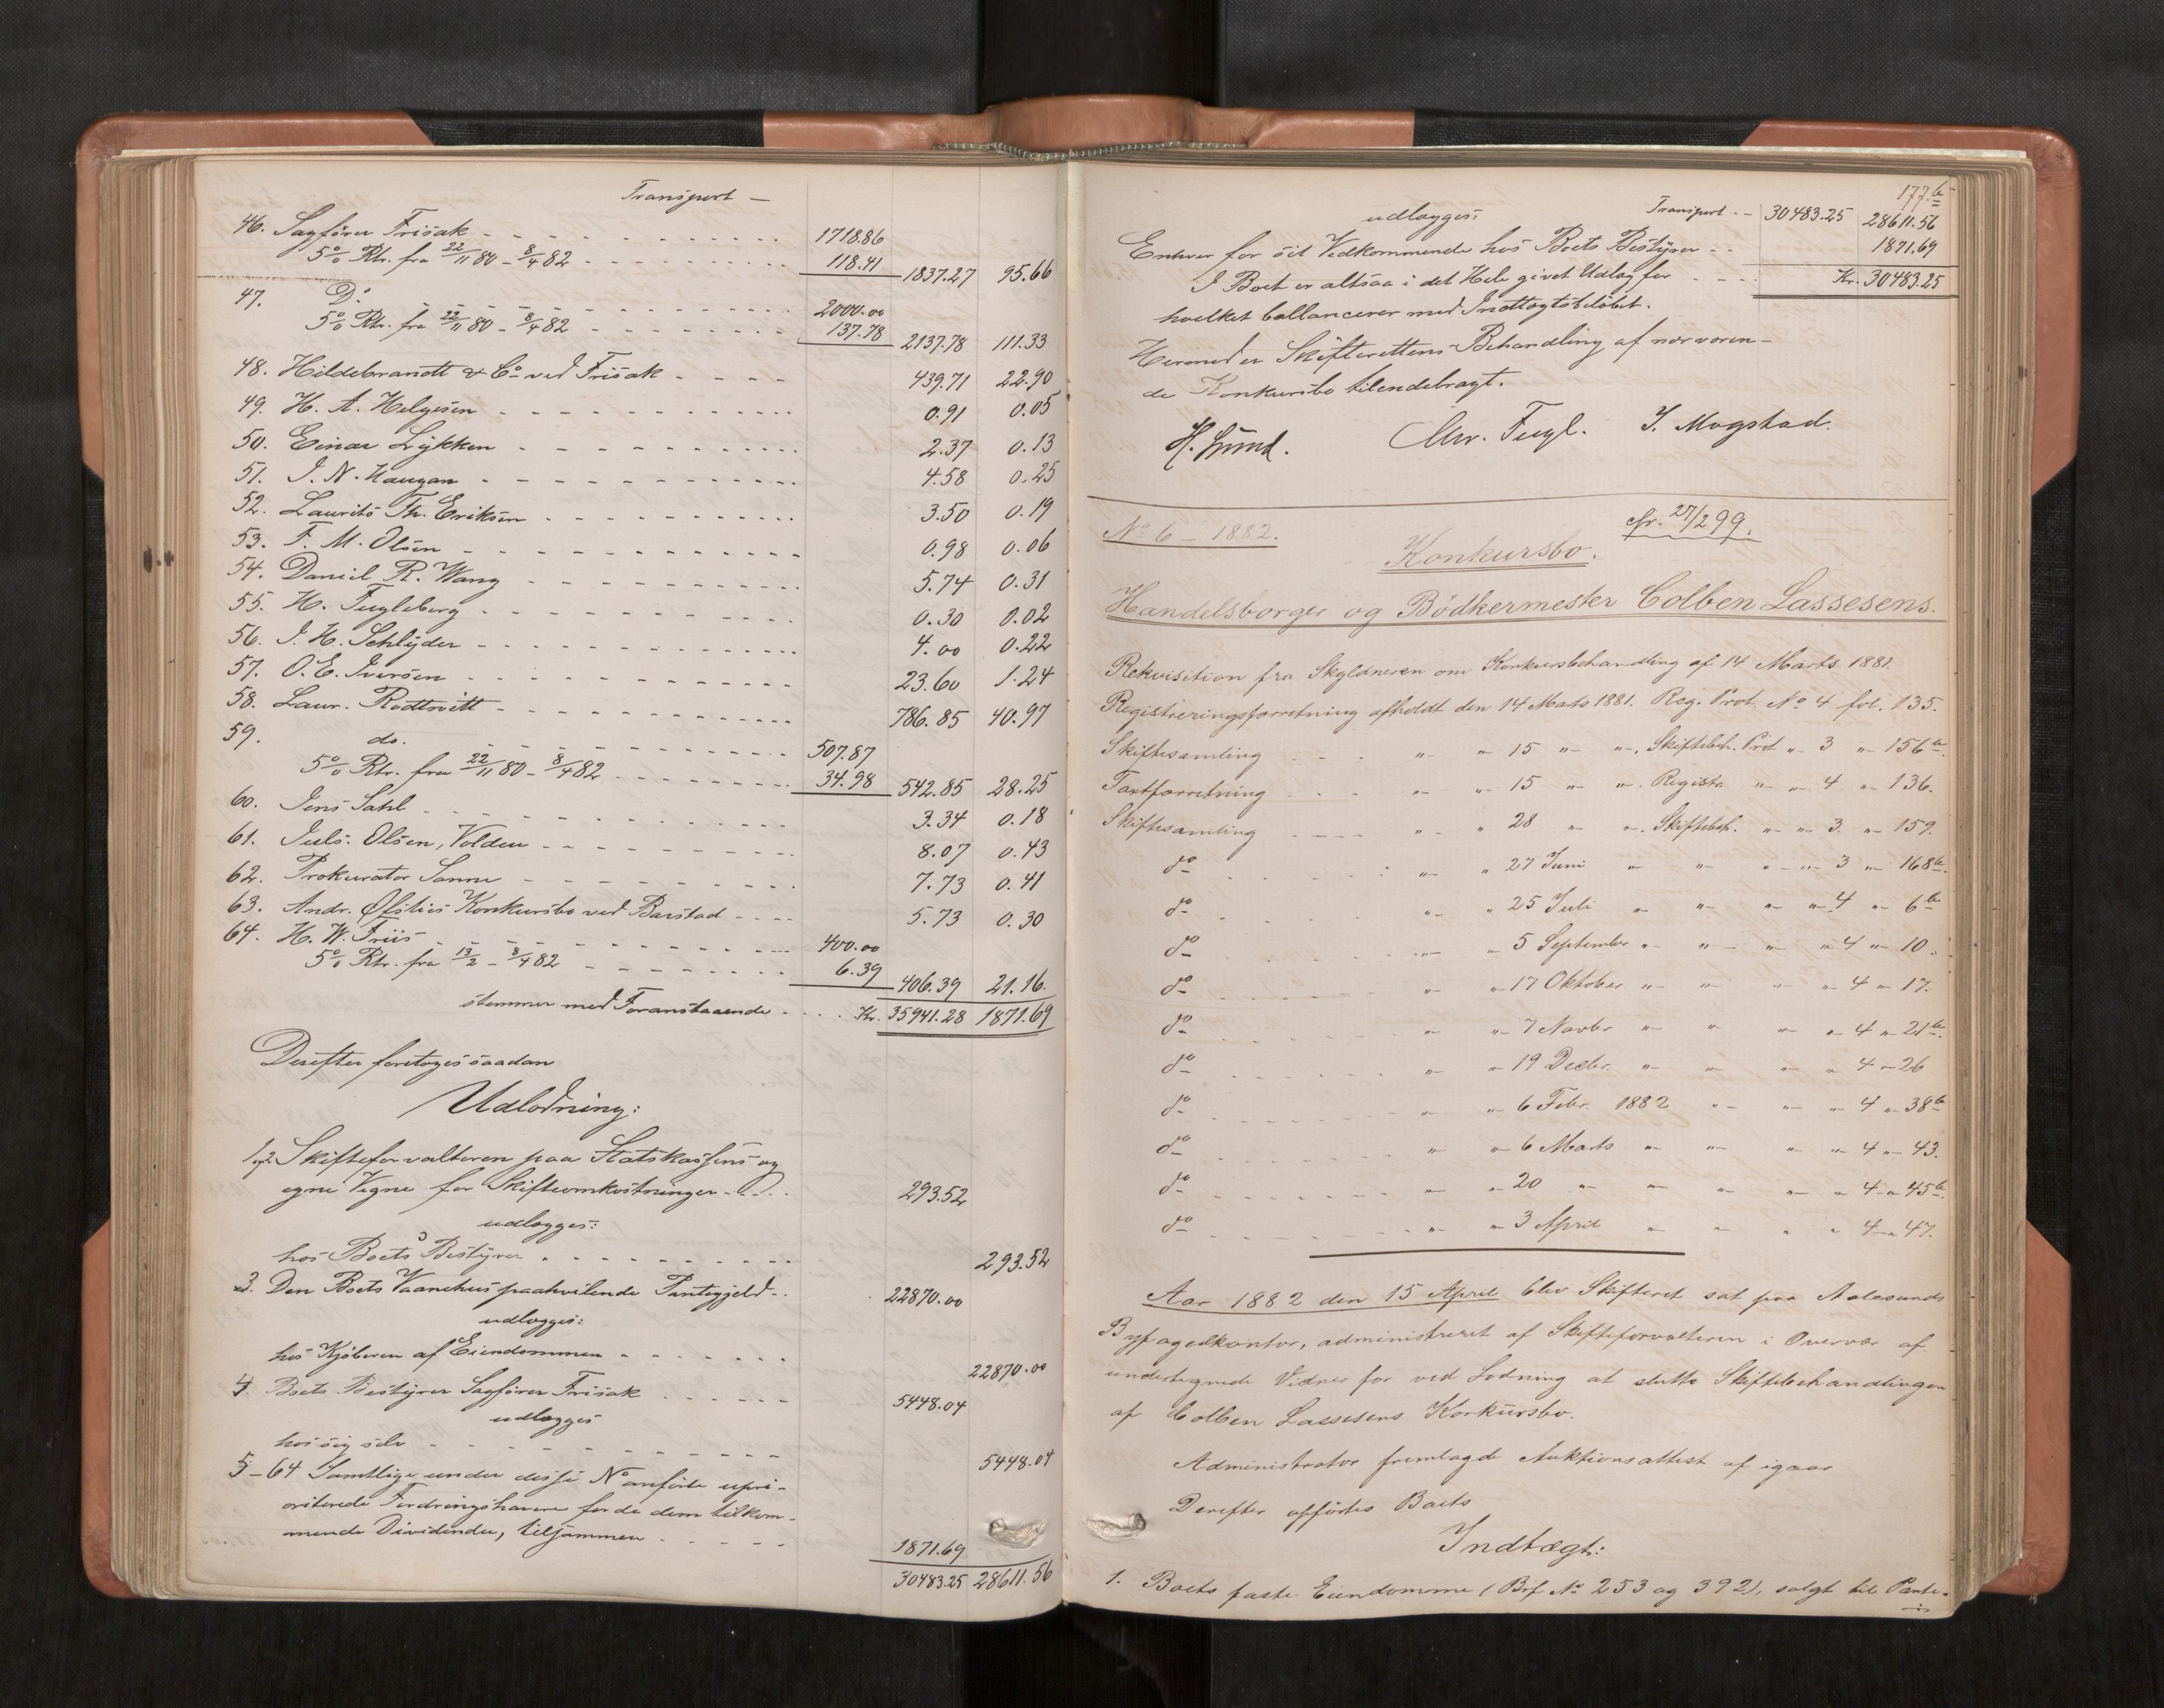 Transport —
46. Sagfører Frisak - - - 1718.86
5% Rtr. fra 22/11 80 - 8/4 82 - - - 118.41 1837.27 95.66
47. Do - - - 2000.00
5% Rtr. fra 22/11 80 - 8/4 82 - - - 137.78 2137.78 111.33
48. Hildebrandt & Co ved Frisak - - - 439.71 22.90
49. H. A. Helgesen - - - 0.91 0.05
50. Einar Lykken - - - 2.37 0.13
51. J. N. Haugan - - - 4.58 0.25
52. Laurits Th. Eriksen - - - 3.50 0.19
53. F. M. Olsen - - - 0.98 0.06
54. Daniel R. Wang - - - 5.74 0.31
55. H. Fugleberg - - - 0.30 0.02
56. J. H. Schlyder - - - 4.00 0.22
57. O. E. Iversen - - - 23.60 1.24
58. Laur. Rødtvitt - - - 786.85 40.97
59. do. - - - 507.87
5% Rtr. fra 22/11 80 - 8/4 82 - - - 34.98 542.85 28.25
60. Jens Sahl - - - 3.34 0.18
61. Juls. Olsen, Volden - - - 8.07 0.43
62. Prokurator Sanne - - - 7.73 0.41
63. Andr. Øfsties Konkursbo ved Barstad - - - 5.73 0.30
64. H. W. Friis - - - 400.00
5% Rtr. fra 13/2 - 8/4 82 - - - 6.39 406.39 21.16.
stemmer med Foranstaaende - - - Kr. 35941.28 1871.69
Derefter foretoges saadan
Udlodning:
1 og 2 Skifteforvalteren paa Statskassens og
egne Vegne for Skifteomkostninger - - - 293.52
udlægges:
hos Boets Bestyrer - - - 293.52
3. Den Boets Vaanehus paahvilende Pantegjeld - - 22870.00
udlægges:
hos Kjøberen af Eiendommen - - - 22870.00
4. Boets Bestyrer Sagfører Frisak - - - 5448.04
udlægges
hos sig selv - - - 5448.04
5-64 Samtlige under disse No anførte upri-
oriterede Fordringshavere for de dem tilkom-
mende Dividender, tilsammen - - - 1871.69
30483.25 28611.56
177.b
udlægges: Transport - - 30483.25 28611.56
Enhver for sit Vedkommende hos Boets Bestyrer - - 1871.69
I Boet er altsaa i det Hele givet Udlæg for - - - Kr. 30483.25
hvilket ballancerer med Indtægtsbeløbet.
Hermed er Skifterettens Behandling af nærværen-
de Konkursbo tilendebragt.
Chr. Fugl. J. Mogstad.
No 6 - 1882. cfr. 27/299.
Konkursbo.
Handelsborger og Bødkermester Colben Lassesens.
Rekvisition fra Skyldneren om Konkursbehandling af 14 Marts 1881.
Registreringsforretning afholdt den 14 Mats 1881. Reg. Prot No 4 fol. 135.
Skiftesamling - - - " " 15 " ". Skiftebeh. Prot " 3 " 156b.
Taxtforretning - - " " 15 " ". Registr " " 4 " 136.
Skiftesamling - - - " " 28 " ". Skiftebeh. " " 3. " 159.
do - - - " " 27 Juni " " " " 3 " 168b.
do - - - " " 25 Juli " " " " 4 " 6b
do - - - " " 5 September " " " " 4 " 10.
do - - - " " 17 Oktober " " " " 4 " 17.
do - - - " " 7 Novbr " " " " 4 " 21b.
do - - - " " 19 Decbr. " " " " 4 " 26
do - - - " " 6 Febr. 1882 " " " 4 " 38b
do - - - " " 6 Marts " " " " 4 " 43.
do - - - " " 20 " " " " " 4 " 45b.
do - - - " " 3 April " " " " 4 " 47.
Aar 1882 den 15 April blev Skifteret sat paa Aalesunds
Byfogedkontor, administreret af Skifteforvalteren i Overvær af
undertegnede Vidner for ved Lodning at slutte Skiftebehandlingen
af Colben Lassesens Konkursbo.
Administrator fremlagde Auktionsattest af igaar
Derefter opførtes Boets
Indtægt:
1. Boets faste Eiendomme (Brf No 253 og 392), solgt til Pante-